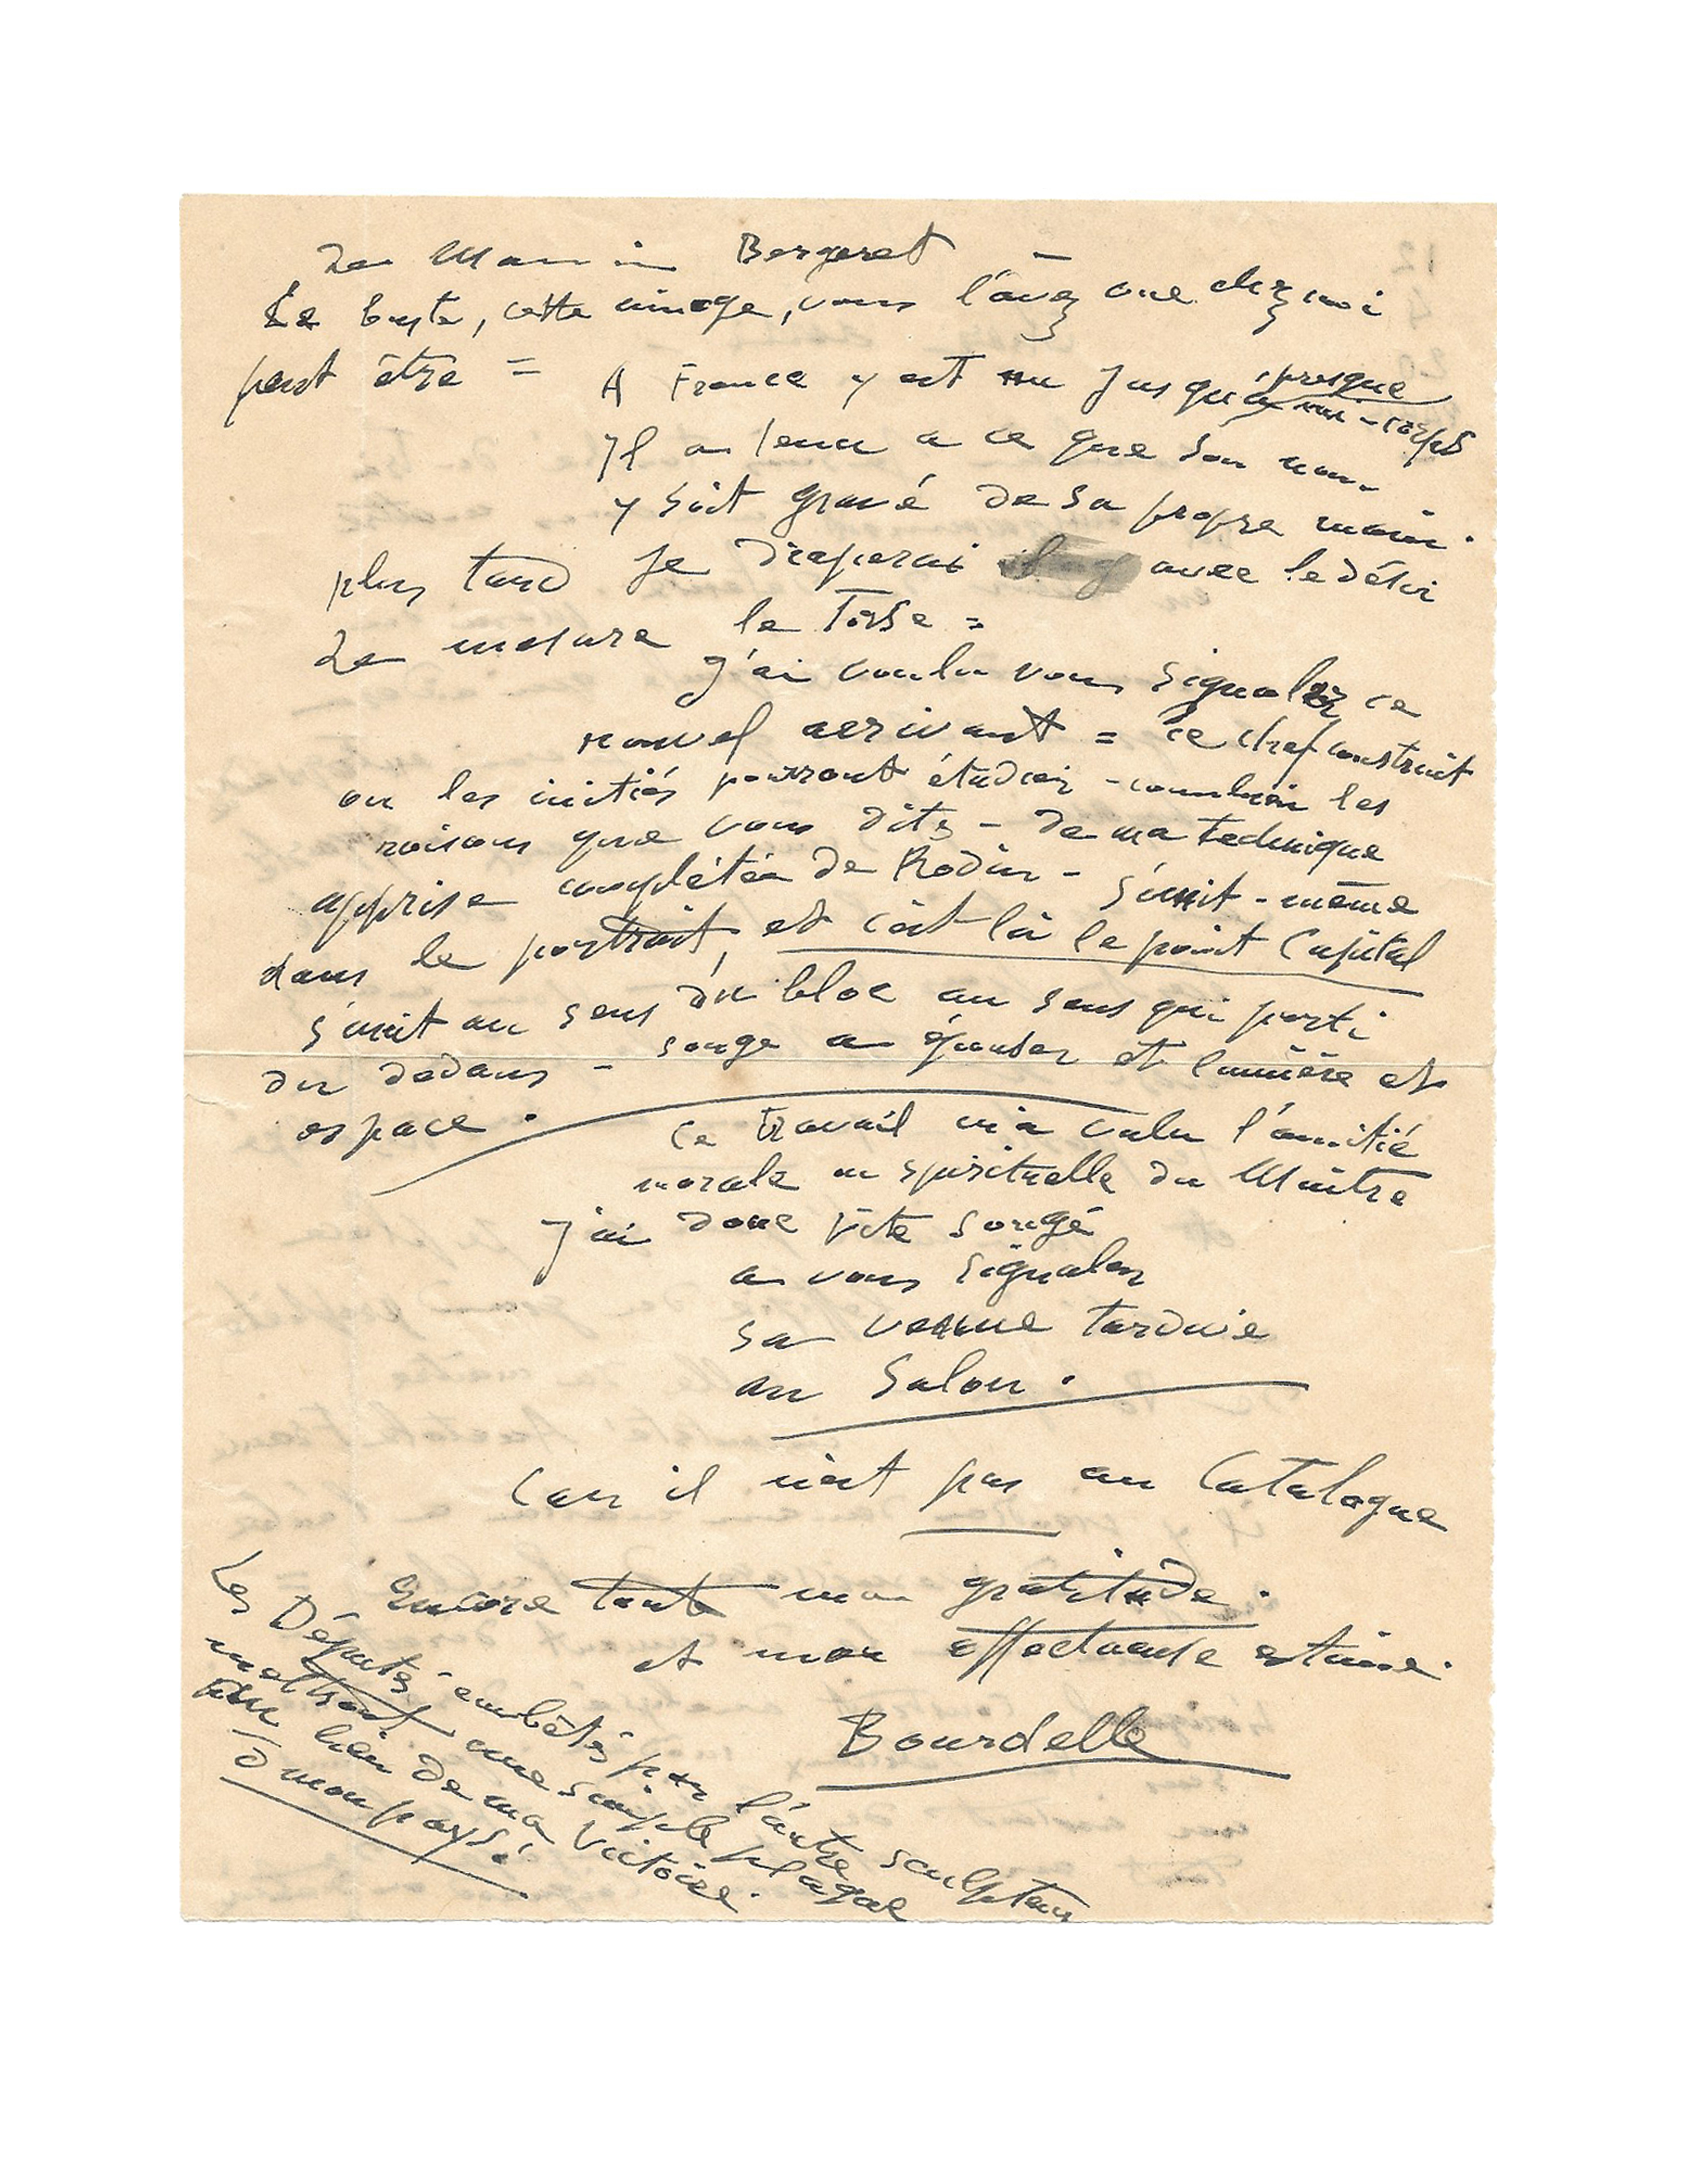 de Bergeret –
Le buste, cette image, vous l'avez vue chez moi
peut être =
A France y est nu jusqu'à presque mi-corps
Il a tenu a ce que son nom
y soit gravé de sa propre main.
plus tard je draperai avec le désir
de mesure le Torse =
J'ai voulu vous signaler ce
nouvel arrivant = ce chef construit
ou les initiés pourront étudier - combien les
raisons que vous dites - de ma technique
apprise complétée de Rodin - s'unit - même
dans le portrait, et c'est là le point Capital
s'unit au sens du bloc au sens qui parti
du dedans - songe a épouser et lumière et
espace.
Ce travail m'a valu l'amitié
morale ou spirituelle du Maitre
J'ai donc vite songé
a vous signaler
sa venue tardive
au Salon.
Car il n'est pas au Catalogue
Encore toute ma gratitude.
et mon affectueuse estime.
Bourdelle
Les Députés embêtés par l'autre sculpteur
mettront une simple plaque
au lieu de ma Victoire.
O mon pays!